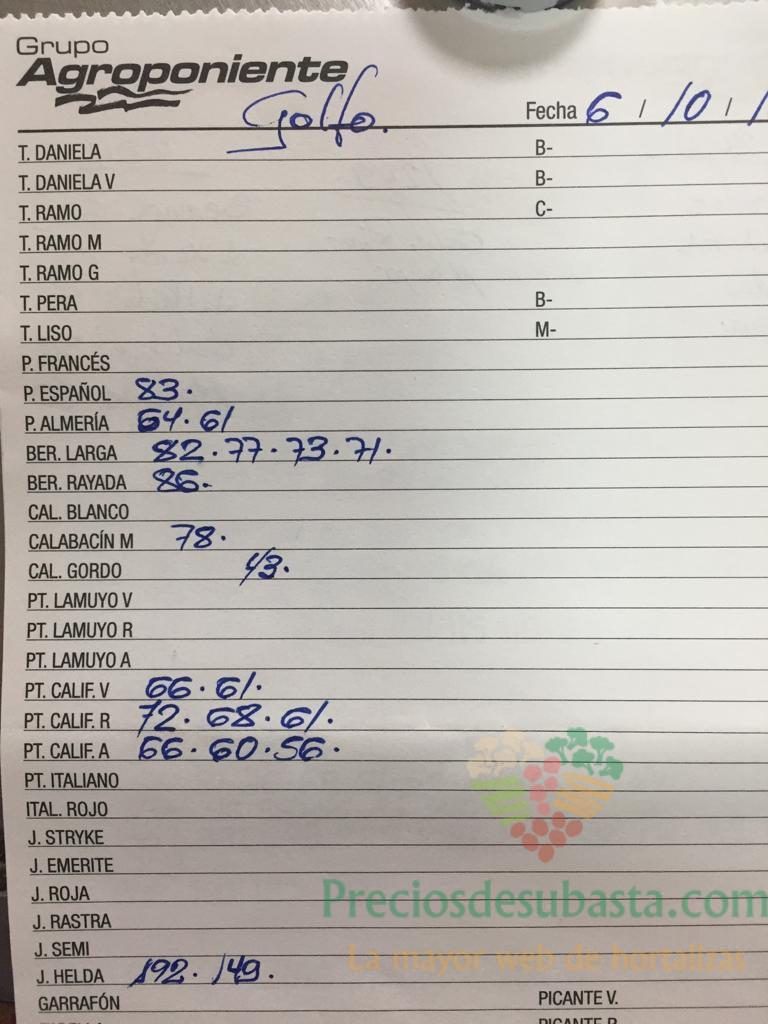 Grupo
Agroponiente
Golfo. Fecha 6 / 10 / 1
T. DANIELA B-
T. DANIELA V B-
T. RAMO C-
T. RAMO M
T. RAMO G
T. PERA B-
T. LISO M-
P. FRANCÉS
P. ESPAÑOL 83.
P. ALMERÍA 64. 61
BER. LARGA 82. 77. 73. 71.
BER. RAYADA 86.
CAL. BLANCO
CALABACÍN M 78.
CAL. GORDO 43.
PT. LAMUYO V
PT. LAMUYO R
PT. LAMUYO A
PT. CALIF. V 66. 61.
PT. CALIF. R 72. 68. 61.
PT. CALIF. A 66. 60. 56.
PT. ITALIANO
ITAL. ROJO
J. STRYKE
J. EMERITE
J. ROJA
Preciosdesubasta.com
J. RASTRA
J. SEMI
La mayor web de hortalizas
J. HELDA 192. 149.
GARRAFÓN PICANTE V.